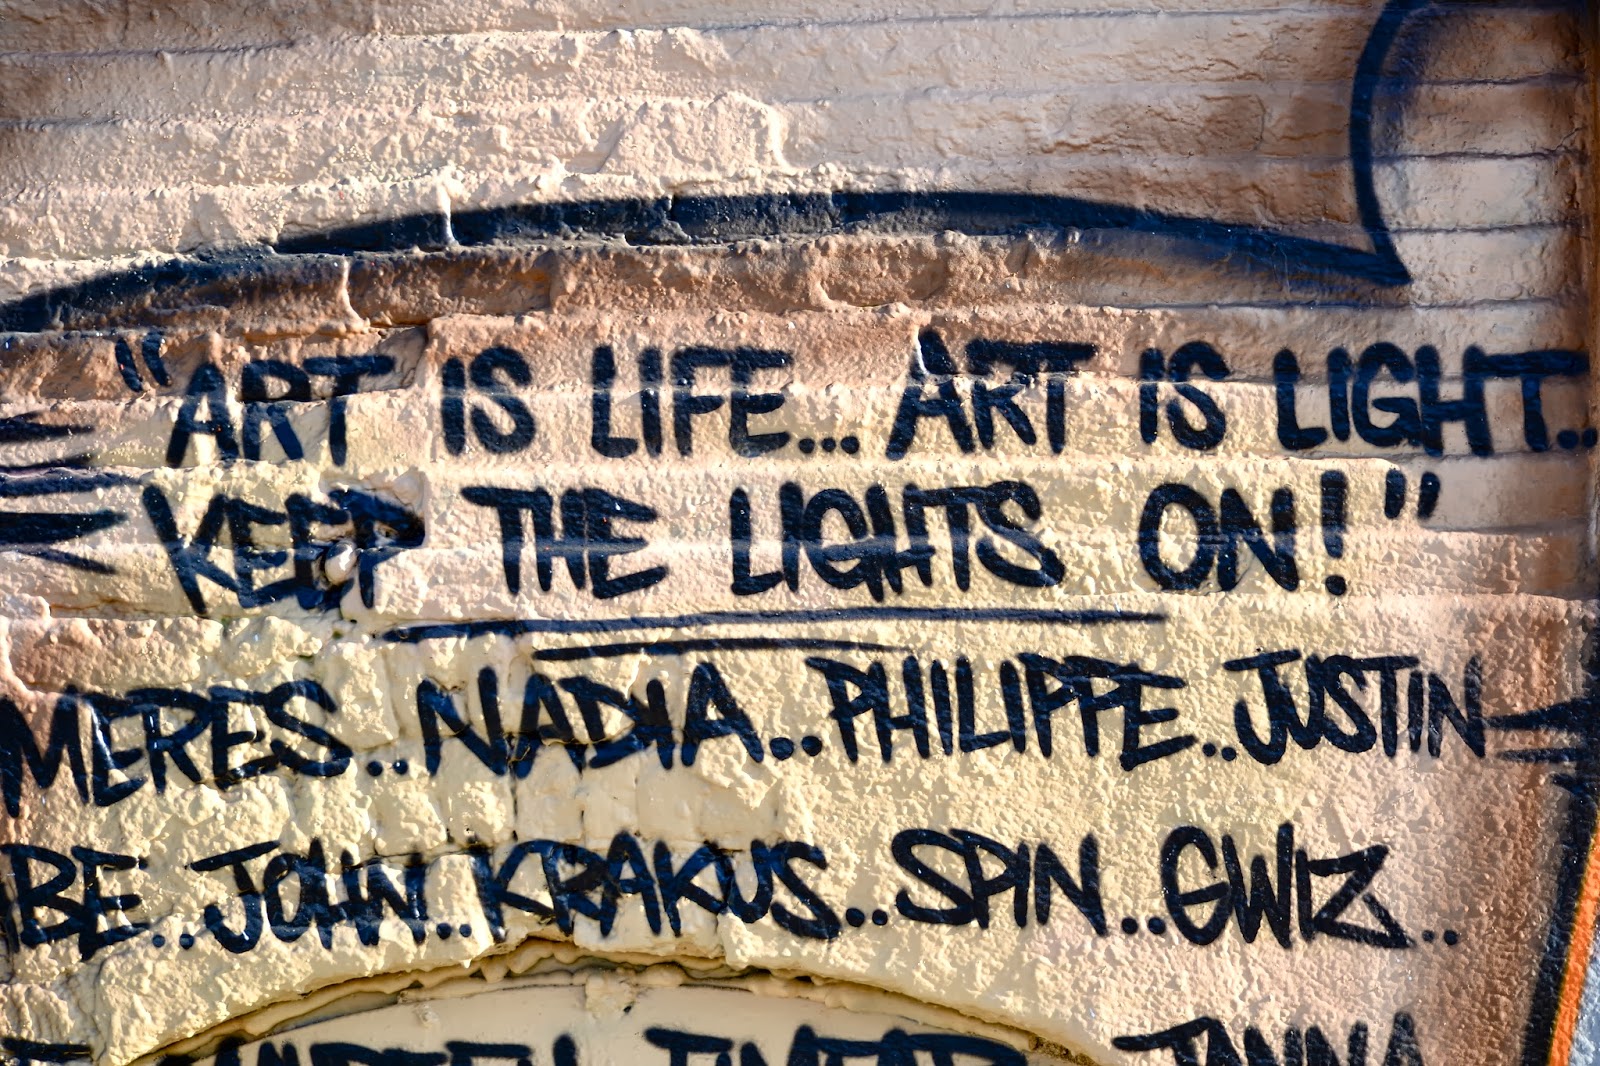 "ART IS LIFE... ART IS LIGHT..
KEEP THE LIGHTS ON!"
MERES.. NADIA.. PHILIPPE.. JUSTIN
BE.. JOHN.. KRAKUS.. SPIN.. GWIZ..